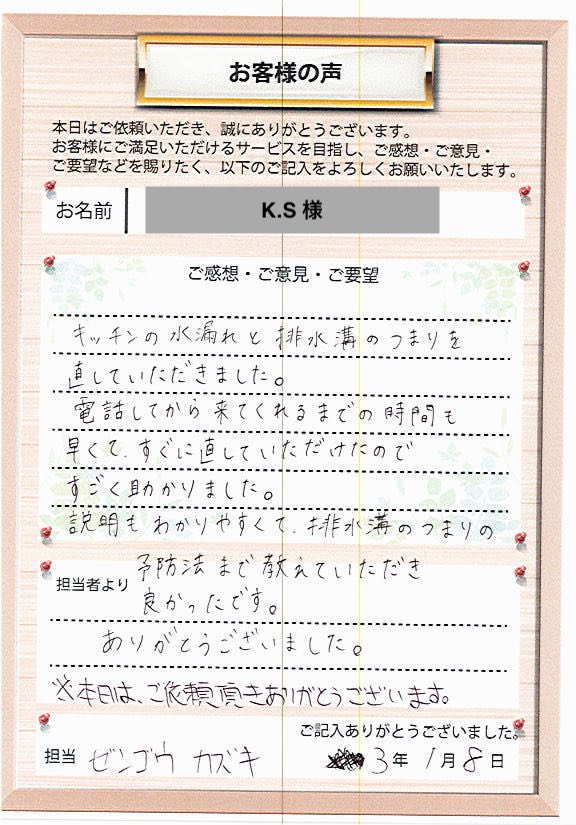 お客様の声
本日はご依頼いただき、誠にありがとうございます。
お客様にご満足いただけるサービスを目指し、ご感想・ご意見・
ご要望などを賜りたく、以下のご記入をよろしくお願いいたします。
お名前 K.S 様
ご感想・ご意見・ご要望
キッチンの水漏れと排水溝のつまりを
直していただきました。
電話してから来てくれるまでの時間も
早くて、すぐに直していただけたので
すごく助かりました。
説明もわかりやすくて、排水溝のつまりの
予防法まで教えていただき
担当者より
良かったです。
ありがとうございました。
※本日は、ご依頼頂きありがとうございます。
ご記入ありがとうございました。
担当 ゼンゴウ カズキ 3年1月8日